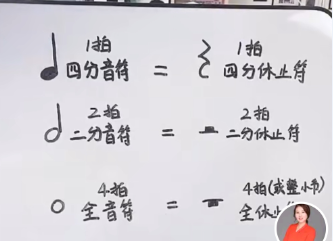 1拍 1拍
四分音符 = 四分休止符
2拍 2拍
二分音符 = 二分休止符
4拍 4拍(或整小节)
全音符 = 全休止符